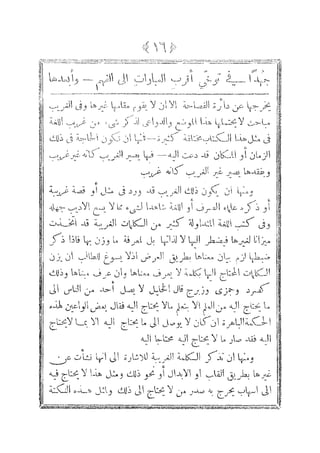 ﴿ ١٦ ﴾
جهدًا — في توخي أقرب العبارات الى الفهم — وأبعدها
يخرجها عن دائرة الفصاحة الا ان لا يقوم مقامها غيرها وفي الغريب
مباحث لا يحتملها هذا الموضع والدواعي لذكر شيء من غريب اللغة
في مثل هذا الكتاب مختلفة كثيرة — فمنها ان تكون الحاجة في ذلك
الزمان أو المكان قد دعت اليه — فبها يصير الغريب كأنه غير غريب
وبفقدها يصير غير الغريب كأنه غريب
ومنها ان يكون ذلك الغريب قد ورد في مثل أو قصة غريبة
أو ذكره علماء الصرف أو اللغة شاهدا لشيء مما لا يسع الاديب جهله
وفي كتب اللغة المتداولة كثير من الكلمات الغريبة قد اتخذت
ميزانا لغيرها فيضطر اليها لا لذاتها بل لمعرفة ما وزن بها فاذا ذكر
ضبطها لزم بيان معناها بطريق العرض اذ لا يسوغ لطالب ان يزن
الكلمات المحتاج اليها بكلمة لا يعرف معناها وان عرف مبناها وذلك
كقردد وجمزى وزبرج قال الخليل لا يصل أحد من الناس الى
ما يحتاج اليه من العلم الا بتعلم مالا يحتاج اليه فقال بعض الواعين لهذه
الحكمة الباهرة ان كان لا يوصل الى ما يحتاج اليه الا بما لا يحتاج
اليه فقد صار ما لا يحتاج اليه محتاجا اليه
ومنها ان تذكر الكلمة الغريبة للاشارة الى انها نشأت عن
غيرها بطريق القلب او الابدال أو نحو ذلك ومثل هذا لا يحتاج فيه
الى اسهاب يحرج به صدر من لا يحتاج الى ذلك ومثل هذه النكتة